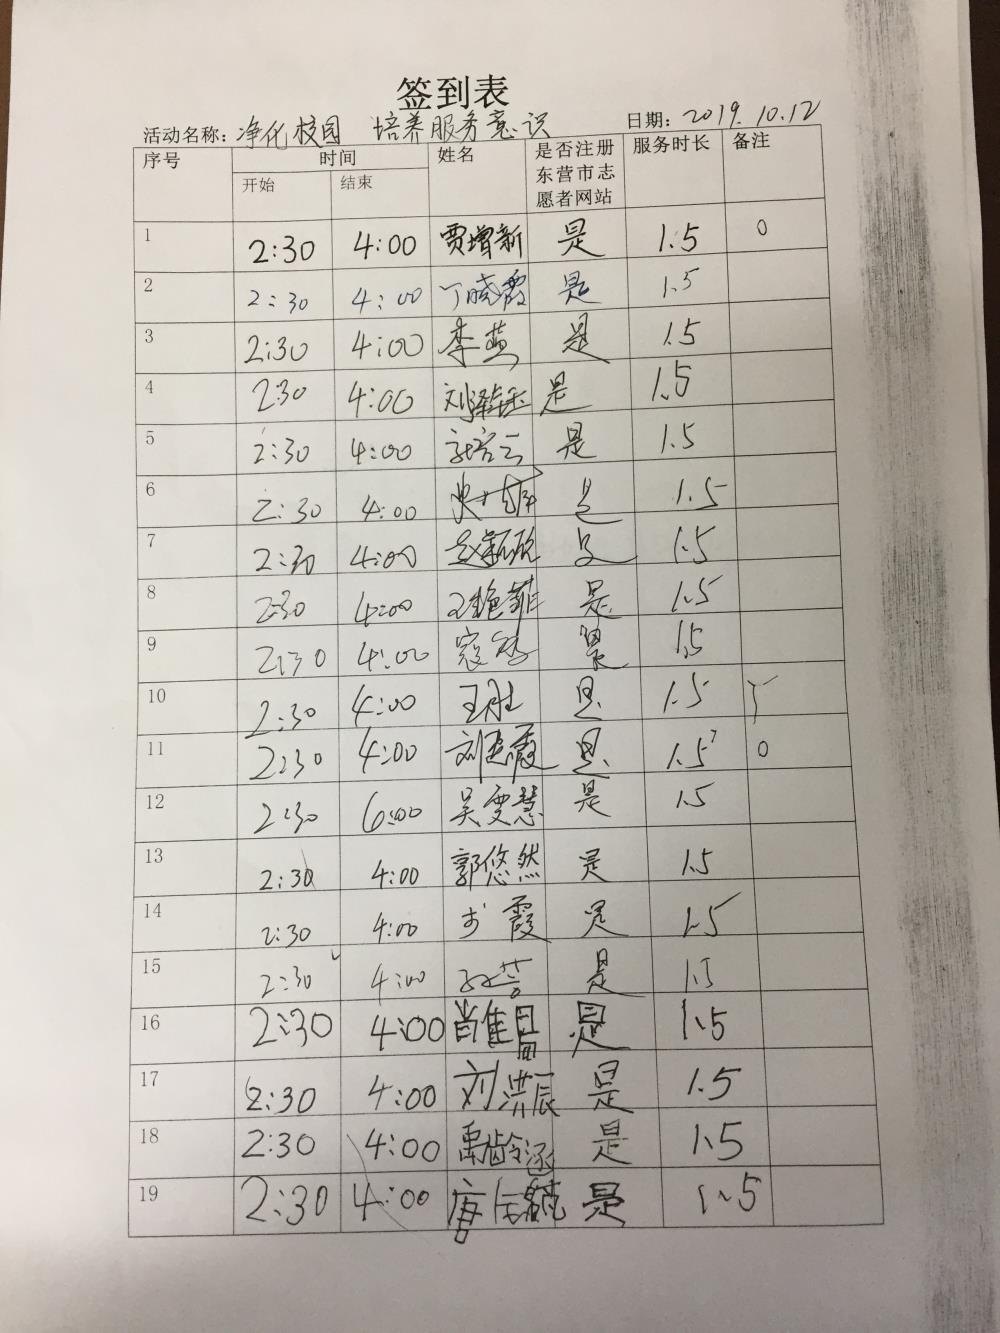 签到表
活动名称：净化校园 培养服务意识 日期：2019.10.12
序号 时间 姓名 是否注册东营市志愿者网站 服务时长 备注
开始 结束
1 2:30 4:00 贾增新 是 1.5 0
2 2:30 4:00 丁晓霞 是 1.5
3 2:30 4:00 李燕 是 1.5
4 2:30 4:00 刘泽钰 是 1.5
5 2:30 4:00 是 1.5
6 2:30 4:00 是 1.5
7 2:30 4:00 是 1.5
8 2:30 4:00 王艳菲 是 1.5
9 2:30 4:00 是 1.5
10 2:30 4:00 王胜 是 1.5
11 2:30 4:00 刘建霞 是 1.5 0
12 2:30 6:00 吴雯慧 是 1.5
13 2:30 4:00 郭悠然 是 1.5
14 2:30 4:00 霞 是 1.5
15 2:30 4:00 是 1.5
16 2:30 4:00 肖佳 是 1.5
17 2:30 4:00 刘洪辰 是 1.5
18 2:30 4:00 禹龄涵 是 1.5
19 2:30 4:00 唐 是 1.5